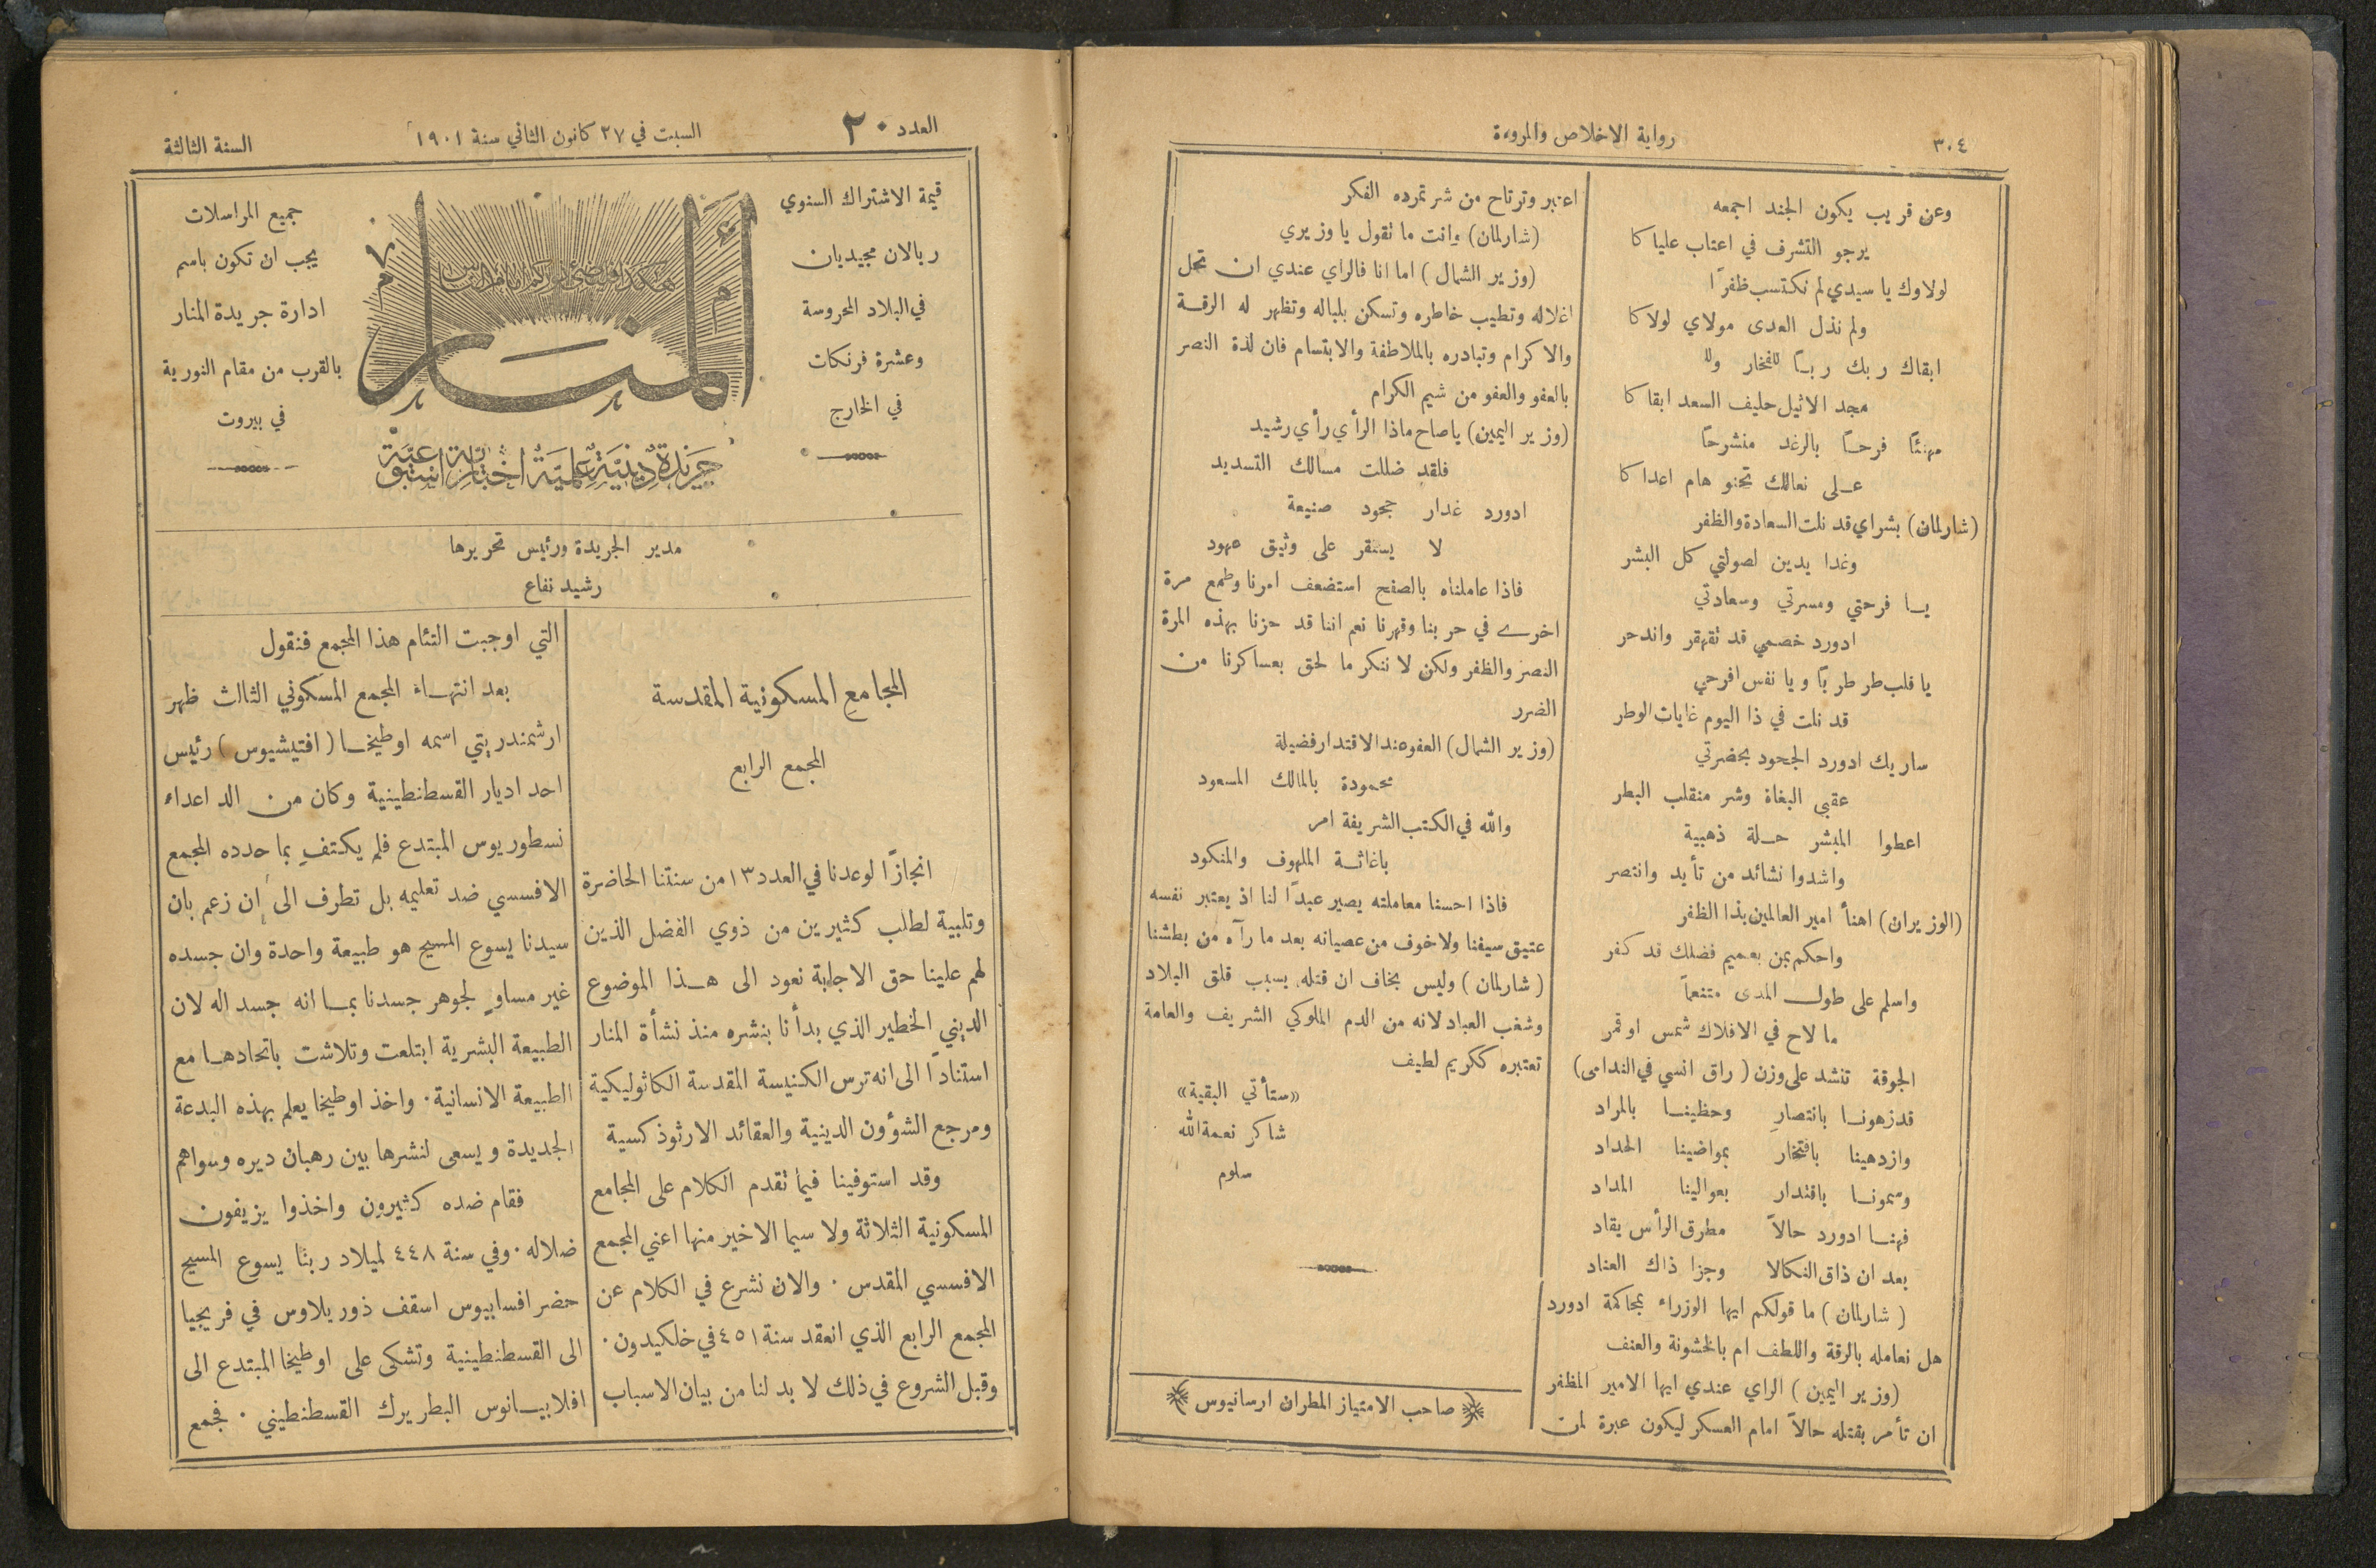 ٣٠٤
رواية الاخلاص والمروءة
وعن قريب يكون الجند اجمعه
يرجو التشرف في اعتاب علياكا
لولاوك يا سيدي لم نكتسب ظفرًا
ولم نذل العدى مولاي لولاكا
ابقاك ربك ربًا للفخار ولا
مجد الاثيل حليف السعد ابقاكا
مهنئًا فرحًا بالرغد منشرحًا
على نعالك تحنو هام اعداكا
(شارلمان) بشراي قد نلت السعادة والظفر
وغدا يدين لصولتي كل البشر
يا فرحتي ومسرتي وسعادتي
ادورد خصمي قد تقهقر واندحر
يا قلب طر طربًا ويا نفس افرحي
قد نلت في ذا اليوم غايات الوطر
ساريك ادورد الجحود بحضرتي
عقبى البغاة وشر منقلب البطر
اعطوا المبشر حلة ذهبية
واشدوا نشائد من تأيد وانتصر
(الوزيران) اهنأ امير العالمين بذا الظفر
واحكم بمن بعميم فضلك قد كفر
واسلم على طول المدى متنعمًا
ما لاح في الافلاك شمس او قمر
الجوقة تنشد على وزن (راق انسي في الندامى)
قد زهونا بانتصارِ وحظينا بالمراد
وازدهينا بافتخار بمواضينا الحداد
وسمونا باقتدار بعوالينا المداد
فهنا ادورد حالاً مطرق الرأس يقاد
بعد ان ذاق النكالا وجزا ذاك العناد
(شارلمان) ما قولكم ايها الوزراء بمحاكمة ادورد
هل نعامله بالرقة واللطف ام بالخشونة والعنف
(وزير اليمين) الراي عندي ايها الامير المظفر
ان تأمر بقتله حالاً امام العسكر ليكون عبرة لمن
اعتبر وترتاح من شر تمرده الفكر
(شارلمان) وانت ما تقول يا وزيري
(وزير الشمال) اما انا فالراي عندي ان تحل
اغلاله وتطيب خاطره وتسكن بلباله وتظهر له الرقة
والاكرام وتبادره بالملاطفة والابتسام فان لذة النصر
بالعفو والعفو من شيم الكرام
(وزير اليمين) ياصاح ماذا الرأي رأي رشيد
فلقد ضللت مسالك التسديد
ادورد غدار جحود صنيعة
لا يستقر على وثيق عهود
فاذا عاملناه بالصفح استضعف امرنا وطمع مرة
اخرى في حربنا وقهرنا نعم اننا قد حزنا بهذه المرة
النصر والظفر ولكن لا ننكر ما لحق بعساكرنا من
الضرر
(وزير الشمال) العفو عند الاقتدار فضيلة
محمودة بالمالك المسعود
والله في الكتب الشريفة امر
باغاثة الملهوف والمنكود
فاذا احسنا معاملته يصير عبدًا لنا اذ يعتبر نفسه
عتيق سيفنا ولا خوف من عصيانه بعد ما رآه من بطشنا
(شارلمان) وليس بخاف ان قتله يسبب قلق البلاد
وشغب العباد لانه من الدم الملوكي الشريف والعامة
تعتبره ككريم لطيف
«ستأتي البقية»
شاكر نعمة الله
سلوم
صاحب الامتياز المطران ارسانيوس
العدد ٢٠
السبت في ٢٧ كانون الثاني سنة ١٩٠١
السنة الثالثة
قيمة الاشتراك السنوي
ريالان مجيديان
في البلاد المحروسة
وعشرة فرنكات
في الخارج
هكذا فليضئ نوركم امام الناس
المنار
جريدة دينية علمية اخبارية اسبوعية
جميع المراسلات
يجب ان تكون باسم
ادارة جريدة المنار
بالقرب من مقام النورية
في بيروت
مدير الجريدة ورئيس تحريرها
رشيد نفاع
المجامع المسكونية المقدسة
المجمع الرابع
انجازًا لوعدنا في العدد ١٣ من سنتنا الحاضرة
وتلبية لطلب كثيرين من ذوي الفضل الذين
لهم علينا حق الاجابة نعود الى هذا الموضوع
الديني الخطير الذي بدأنا بنشره منذ نشأة المنار
استنادًا الى انه ترس الكنيسة المقدسة الكاثوليكية
ومرجع الشؤون الدينية والعقائد الارثوذكسية
وقد استوفينا فيما تقدم الكلام على المجامع
المسكونية الثلاثة ولا سيما الاخير منها اعني المجمع
الافسسي المقدس . والان نشرع في الكلام عن
المجمع الرابع الذي انعقد سنة ٤٥١ في خلكيدون .
وقبل الشروع في ذلك لا بد لنا من بيان الاسباب
التي اوجبت التئام هذا المجمع فنقول
بعد انتهاء المجمع المسكوني الثالث ظهر
ارشمندريتي اسمه اوطيخا (افتيشيوس) رئيس
احد اديار القسطنطينية وكان من الد اعداء
نسطوريوس المبتدع فلم يكتفِ بما حدده المجمع
الافسسي ضد تعليمه بل تطرف الى ان زعم بان
سيدنا يسوع المسيح هو طبيعة واحدة وان جسده
غير مساوٍ لجوهر جسدنا بما انه جسد اله لان
الطبيعة البشرية ابتلعت وتلاشت باتحادها مع
الطبيعة الانسانية . واخذ اوطيخا يعلم بهذه البدعة
الجديدة ويسعى لنشرها بين رهبان ديره وسواهم
فقام ضده كثيرون واخذوا يزيفون
ضلاله . وفي سنة ٤٤٨ لميلاد ربنا يسوع المسيح
حضر افسابيوس اسقف ذوريلاوس في فريجيا
الى القسطنطينية وتشكى على اوطيخا المبتدع الى
افلابيانوس البطريرك القسطنطيني . فجمع